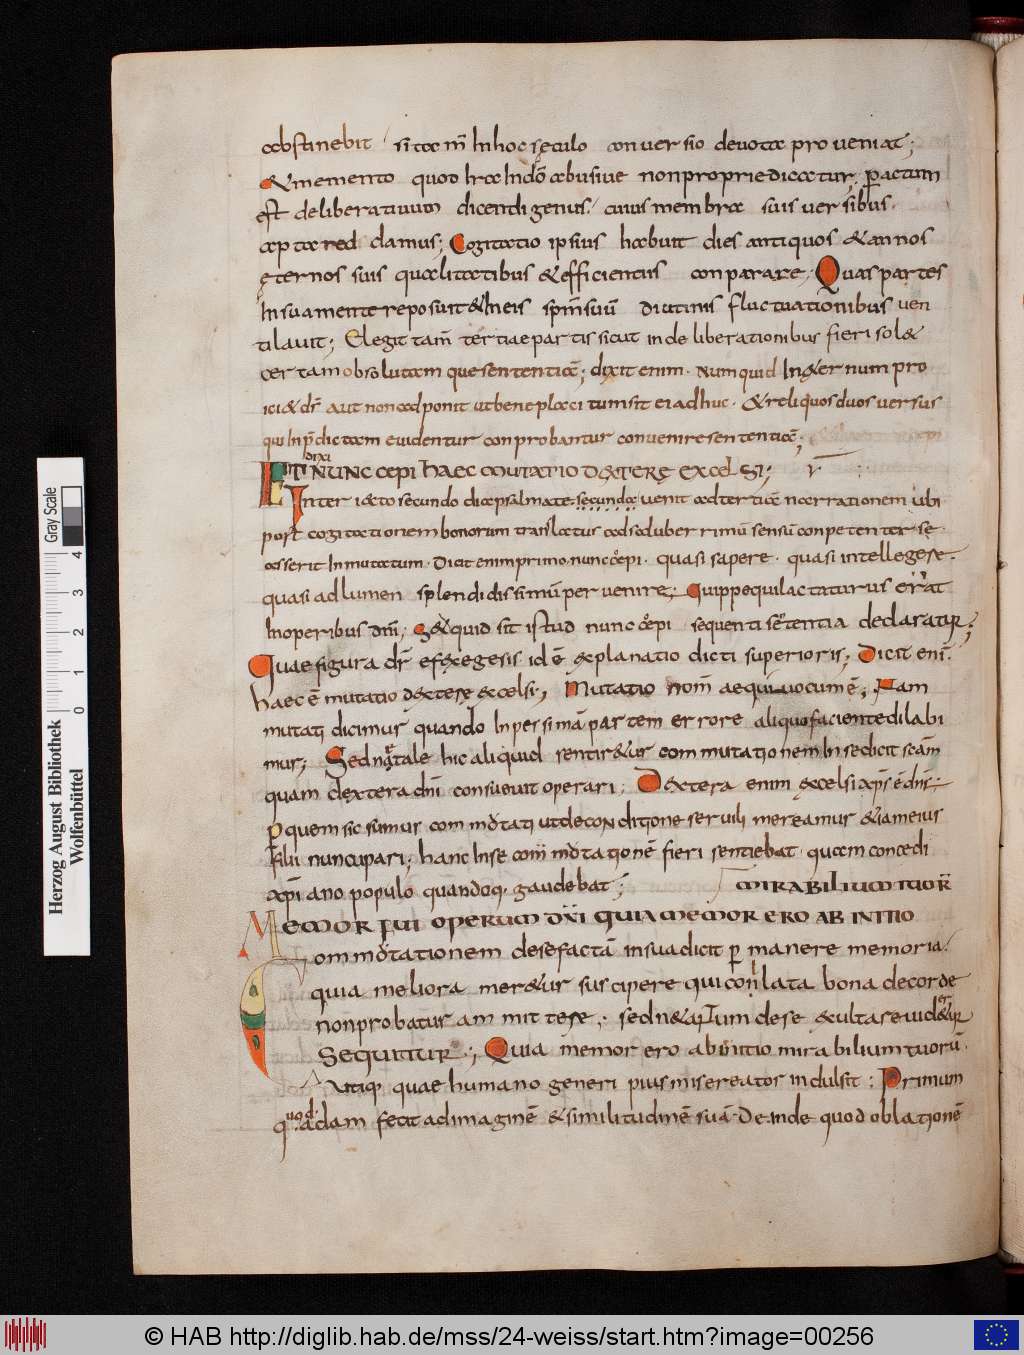 abstinebit si tam̄ In hoc sęculo conversio devota proveniat;
& memento quod hrͣ Indō abusive non proprie dicatur; ꝑactum
est deliberativum dicendi genus. cuius membra suis versibus
aptare debamus; Cogitatio ipsius habuit dies antiquos & annos
ęternos suis qualitatibus & efficientiis conparare. Quas partes
In sua mente reposuit & In eis spm̄ suū diutinis fluctuationibus ven
tilavit; Elegit tam̄ tertiae partis sicut in deliberationibus fieri sol&
certam obsolutam que sententiā; dixit enim. Numquid In&ernum pro
ici& dr̄ aut non adponit ut beneplaciitum sit ei adhuc. & reliquos duos versus
qui In p̄dictam evidentur conprobantur convenire sententiā;
ET dixi NUNC CEPI HAEC MUTATIO DEXTERĘ EXCELSI;
Interiecto secundo diapsalmate. secunda venit ad tertiā narrationem ubi
post cogitationem bonorum translatus ad saluberrimū sensū conpetenter se
asserit Inmutatum. Dicit enim primo nunc cępi. quasi sapere. quasi intellegere.
quasi ad lumen splendidissimū pervenire; Quippe qui lactaturus erat
In operibus dn̄i; S&quid sit istud nunc cępi sequenti sententia declaratur;
Quae figura dr̄ efexegesis id ē explanatio dicti superioris; Dicit enī.
haec ē mutatio dexterę excelsi; Mutatio nom̄ aequivocum ē; Nam
mutati dicimur quando In pessimā partem errore aliquo faciente dilabi
mur; Sed nā tale hic aliquid sentir&ur commutationem In se dicit factam̄
quam dextera dn̄i consuevit operari; Dextera enim excelsi xp̄s ē dn̄s;
ꝑ quem sic sumus commutati ut de conditione servili mereamur &iam eius
filii nuncupari; hanc In se com̄mutationē fieri sentiebat. quam concedi
xp̄iano populo quandoq; gaudebat; MIRABILIUM TUOR̄
MEMOR FUI OPERUM DN̄I QUIA MEMOR ERO AB INITIO
Commutationem de se factā in sua dicit ꝑmanere memoria.
quia meliora mer&ur suscipere qui conlata bona de corde
non probatur ammittere; sed n& tantum de se exultare vider&ur
Sequitur; Quia memor ero ab initio mirabilium tuorū.
Utiq; quae humano generi pius miserator indulsit; Primum
quod adam fecit ad imaginē & similitudinē suā. Deinde quod oblationē
Herzog August Bibliothek
Wolfenbüttel
0 1 2 3 4
Gray Scale
© HAB http://diglib.hab.de/mss/24-weiss/start.htm?image=00256